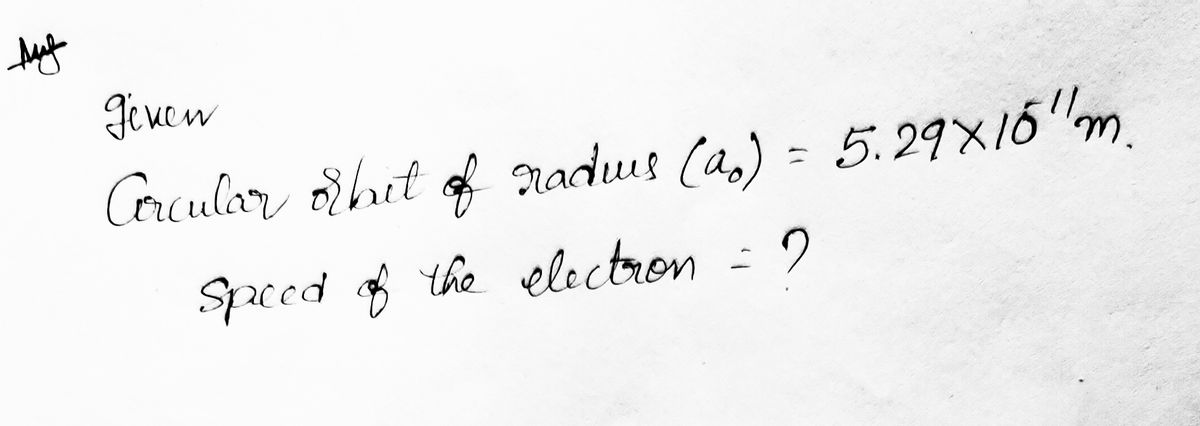 Ans
given
Circular orbit of radius (a₀) = 5.29×10⁻¹¹m.
speed of the electron = ?